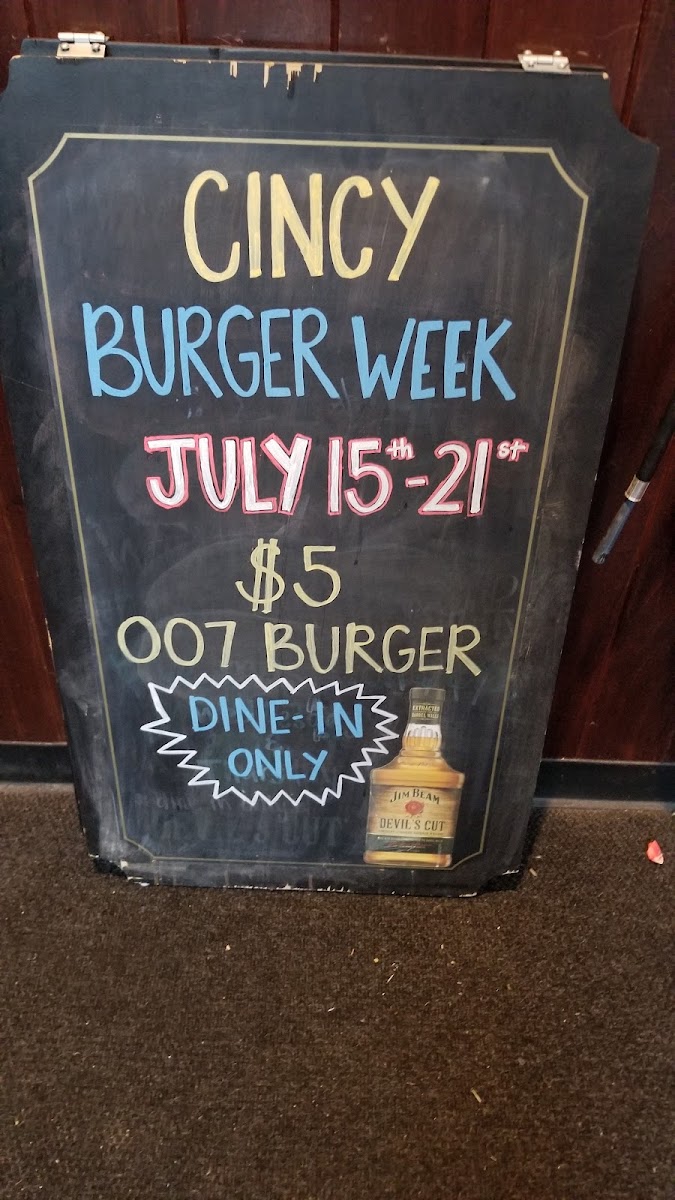 CINCY
BURGER WEEK
JULY 15th-21st
$5
007 BURGER
DINE-IN
ONLY
EXTRACTED
BARREL AGED
JIM BEAM
DEVIL'S CUT